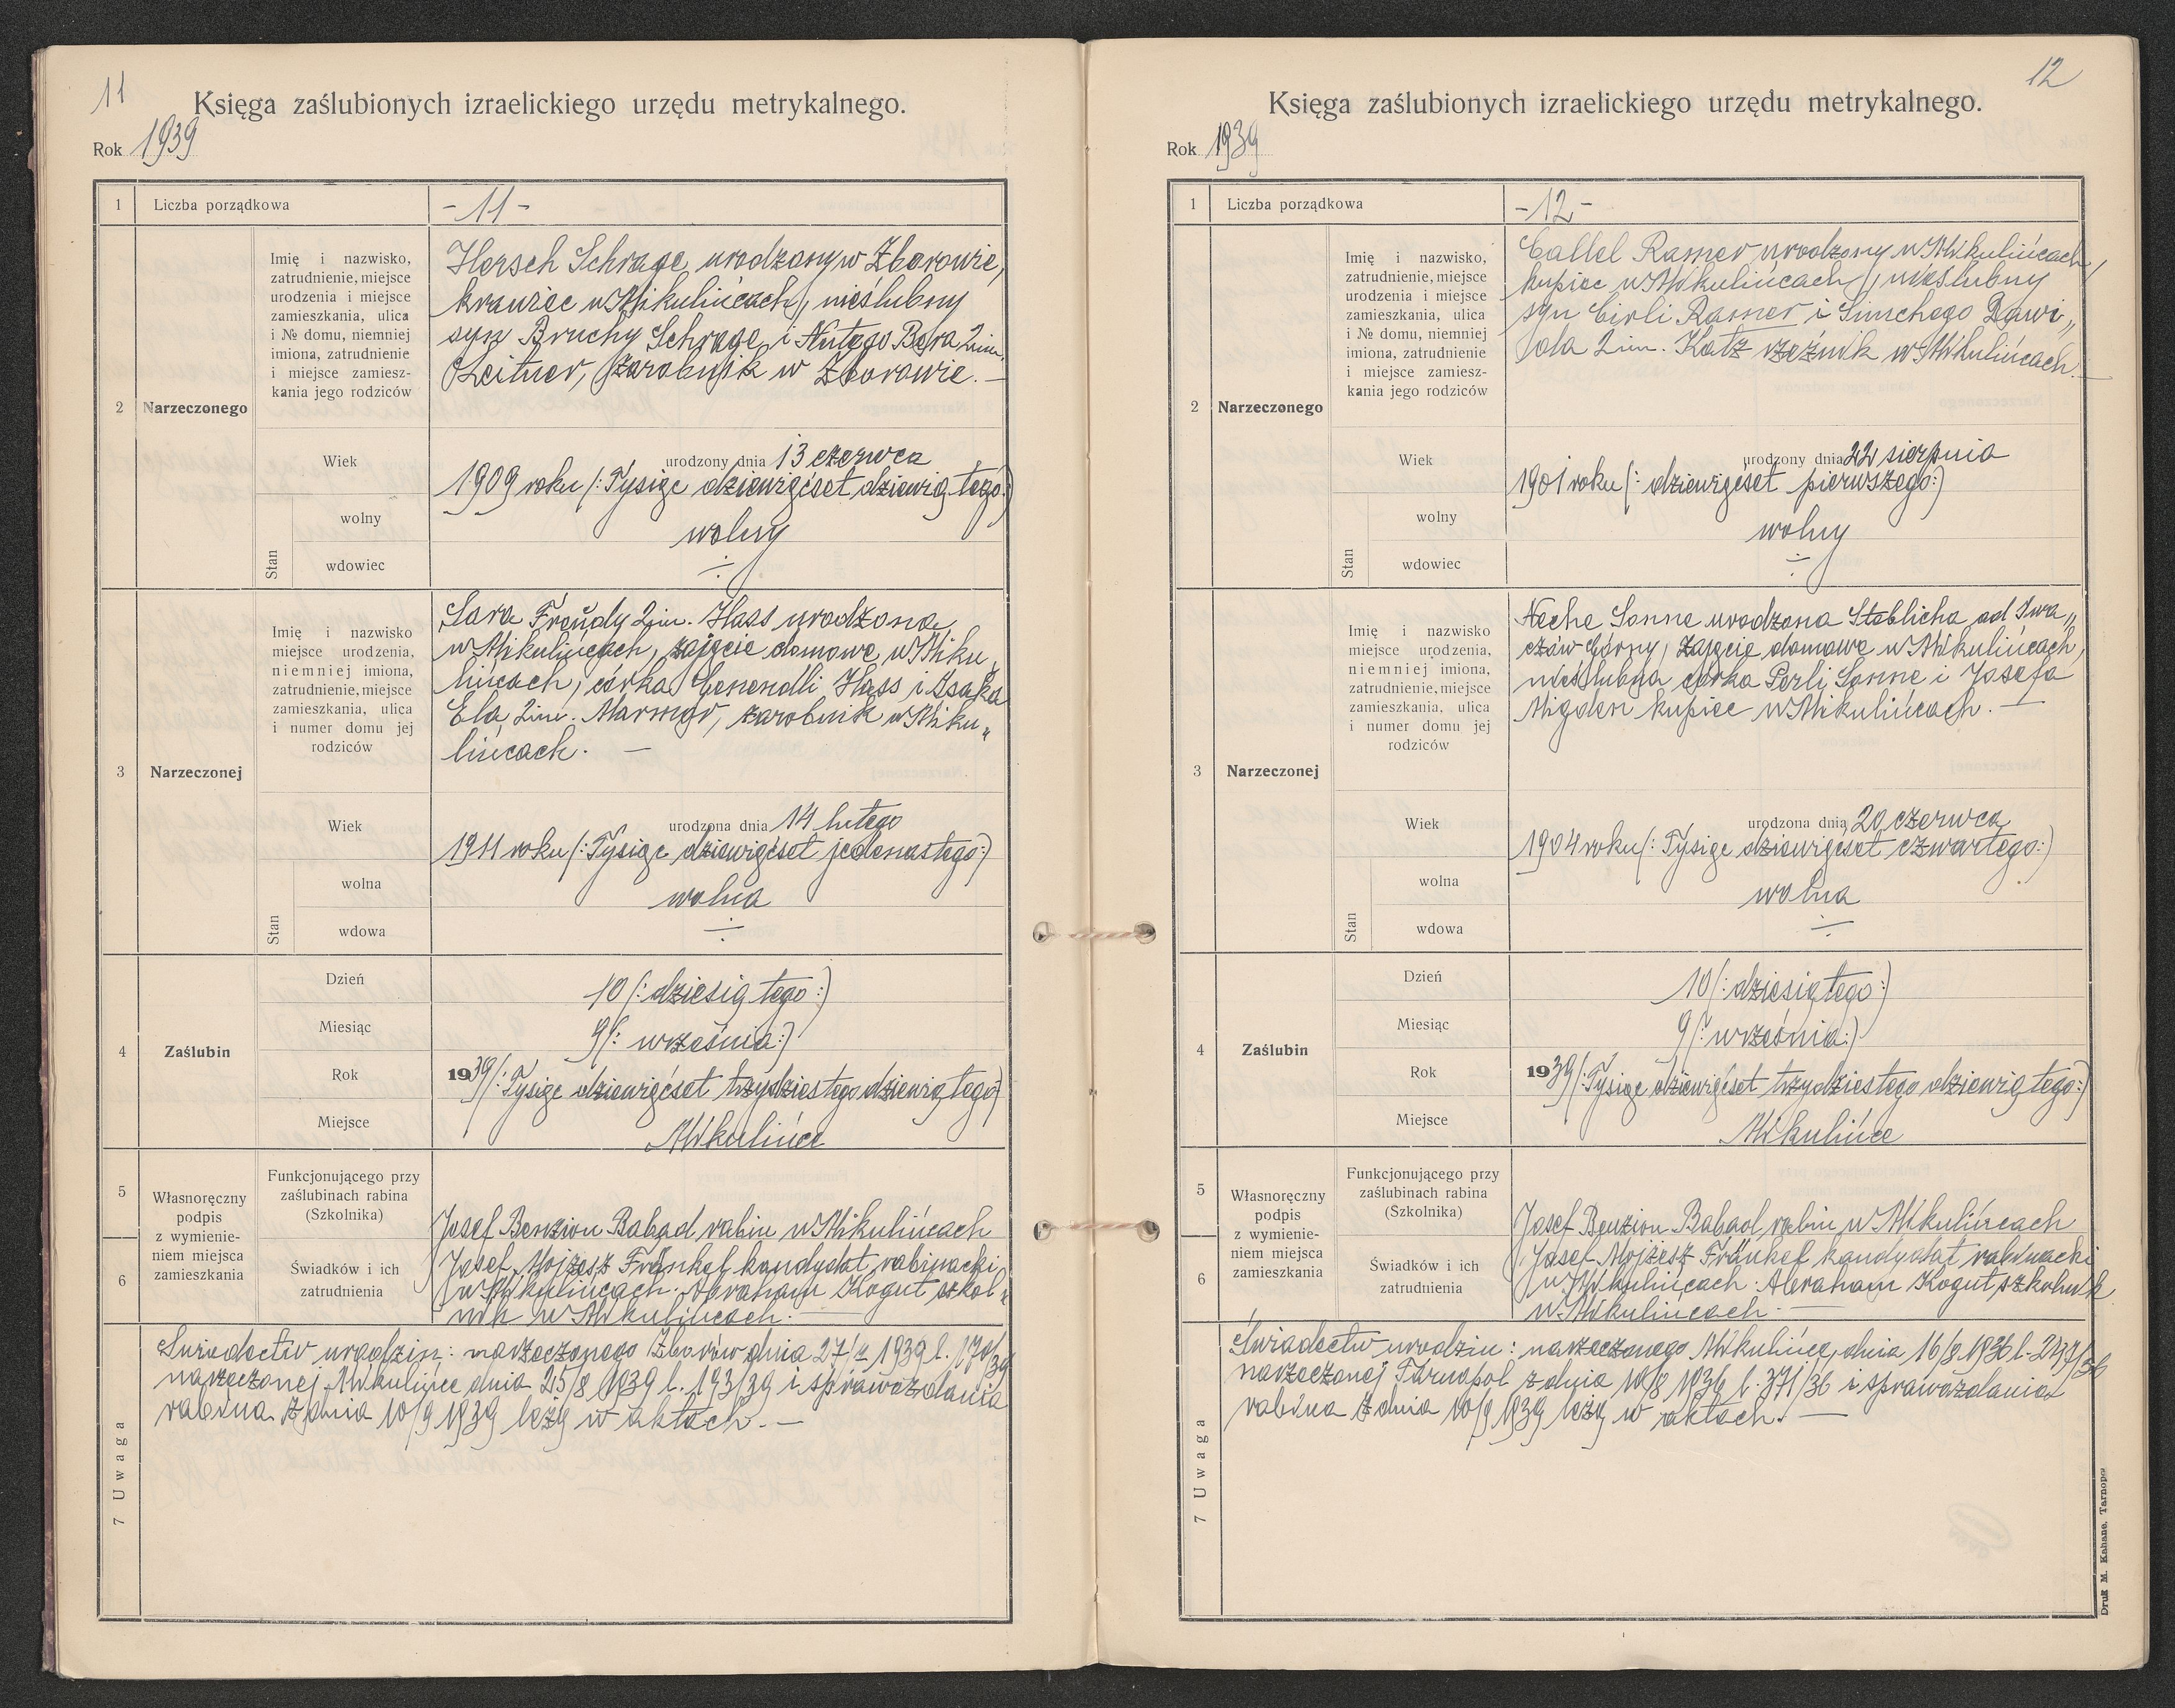 11
Księga zaślubionych izraelickiego urzędu metrykalnego.
Rok 1939
1 Liczba porządkowa -11-
2 Narzeczonego
Imię i nazwisko,
zatrudnienie, miejsce
urodzenia i miejsce
zamieszkania, ulica
i № domu, niemniej
imiona, zatrudnienie
i miejsce zamiesz-
kania jego rodziców
Hersch Schrage urodzony w Zborowie,
krawiec w Mikulińcach, nieślubny
syn Bruchy Schrage i Nutego Bera 2 im.
Leitner, zarobnik w Zborowie. —
Wiek
urodzony dnia 13 czerwca
1909 roku (: Tysiąc dziewięćset dziewiątego :)
Stan
wolny
wolny
wdowiec
÷
3 Narzeczonej
Imię i nazwisko
miejsce urodzenia,
niemniej imiona,
zatrudnienie, miejsce
zamieszkania, ulica
i numer domu jej
rodziców
Sara Freudy 2 im. Hass urodzona
w Mikulińcach, zajęcie domowe w Miku
lińcach, córka Genendli Hass i Isaka
Ela 2 im. , zarobnik w Miku„
lińcach. —
Wiek
urodzona dnia 14 lutego
1911 roku (: Tysiąc dziewięćset jedenastego :)
Stan
wolna
wolna
wdowa
÷
4 Zaślubin
Dzień 10 (: dziesiątego :)
Miesiąc 9 (: września :)
Rok 1939 (: Tysiąc dziewięćset trzydziestego dziewiątego :)
Miejsce Mikulińce
5
6
Własnoręczny
podpis
z wymienie-
niem miejsca
zamieszkania
Funkcjonującego przy
zaślubinach rabina
(Szkolnika)
Josef Benzion Babad rabin w Mikulińcach
Świadków i ich
zatrudnienia
Josef Mojżesz Fränkel kandydat rabinacki
w Mikulińcach. Abraham Kogut szkol„
nik w Mikulińcach. —
7 Uwaga
Świadectw urodzin: narzeczonego Zborów dnia 1939 l.
narzeczonej Mikulińce dnia 25/8 1939 l. 193/39 i sprawozdania
rabina z dnia 10/9 1939 leżą w aktach. —
12
Księga zaślubionych izraelickiego urzędu metrykalnego.
Rok 1939
1 Liczba porządkowa -12-
2 Narzeczonego
Imię i nazwisko,
zatrudnienie, miejsce
urodzenia i miejsce
zamieszkania, ulica
i № domu, niemniej
imiona, zatrudnienie
i miejsce zamiesz-
kania jego rodziców
Callel Ramer urodzony w Mikulińcach,
kupiec w Mikulińcach, nieślubny
syn Cirli Ramer i Simchego Dawi„
da 2 im. Katz rzeźnik w Mikulińcach. —
Wiek
urodzony dnia 22 sierpnia
1901 roku (: dziewięćset pierwszego :)
Stan
wolny
wolny
wdowiec
÷
3 Narzeczonej
Imię i nazwisko
miejsce urodzenia,
niemniej imiona,
zatrudnienie, miejsce
zamieszkania, ulica
i numer domu jej
rodziców
Neche Sonne urodzona Steblicha ad Iwa„
czów Górny, zajęcie domowe w Mikulińcach,
nieślubna córka Perli Sonne i Josefa
Migden kupiec w Mikulińcach. —
Wiek
urodzona dnia 20 czerwca
1904 roku (: Tysiąc dziewięćset czwartego :)
Stan
wolna
wolna
wdowa
÷
4 Zaślubin
Dzień 10 (: dziesiątego :)
Miesiąc 9 (: września :)
Rok 1939 (: Tysiąc dziewięćset trzydziestego dziewiątego :)
Miejsce Mikulińce
5
6
Własnoręczny
podpis
z wymienie-
niem miejsca
zamieszkania
Funkcjonującego przy
zaślubinach rabina
(Szkolnika)
Josef Benzion Babad rabin w Mikulińcach
Świadków i ich
zatrudnienia
Josef Mojżesz Fränkel kandydat rabinacki
w Mikulińcach. Abraham Kogut szkolnik
w Mikulińcach. —
7 Uwaga
Świadectw urodzin: narzeczonego Mikulińce, dnia 16/8 1936 l. 247/36
narzeczonej Tarnopol z dnia 10/8 1936 l. 371/36 i sprawozdania
rabina z dnia 10/9 1939 leżą w aktach. —
Druk M. Kahane, Tarnopol